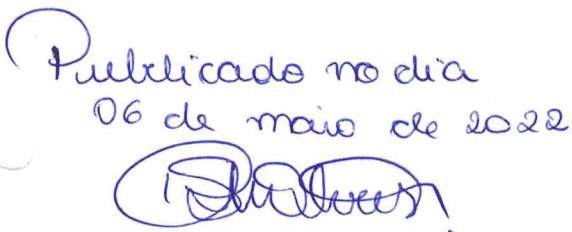 Publicado no dia
06 de maio de 2022